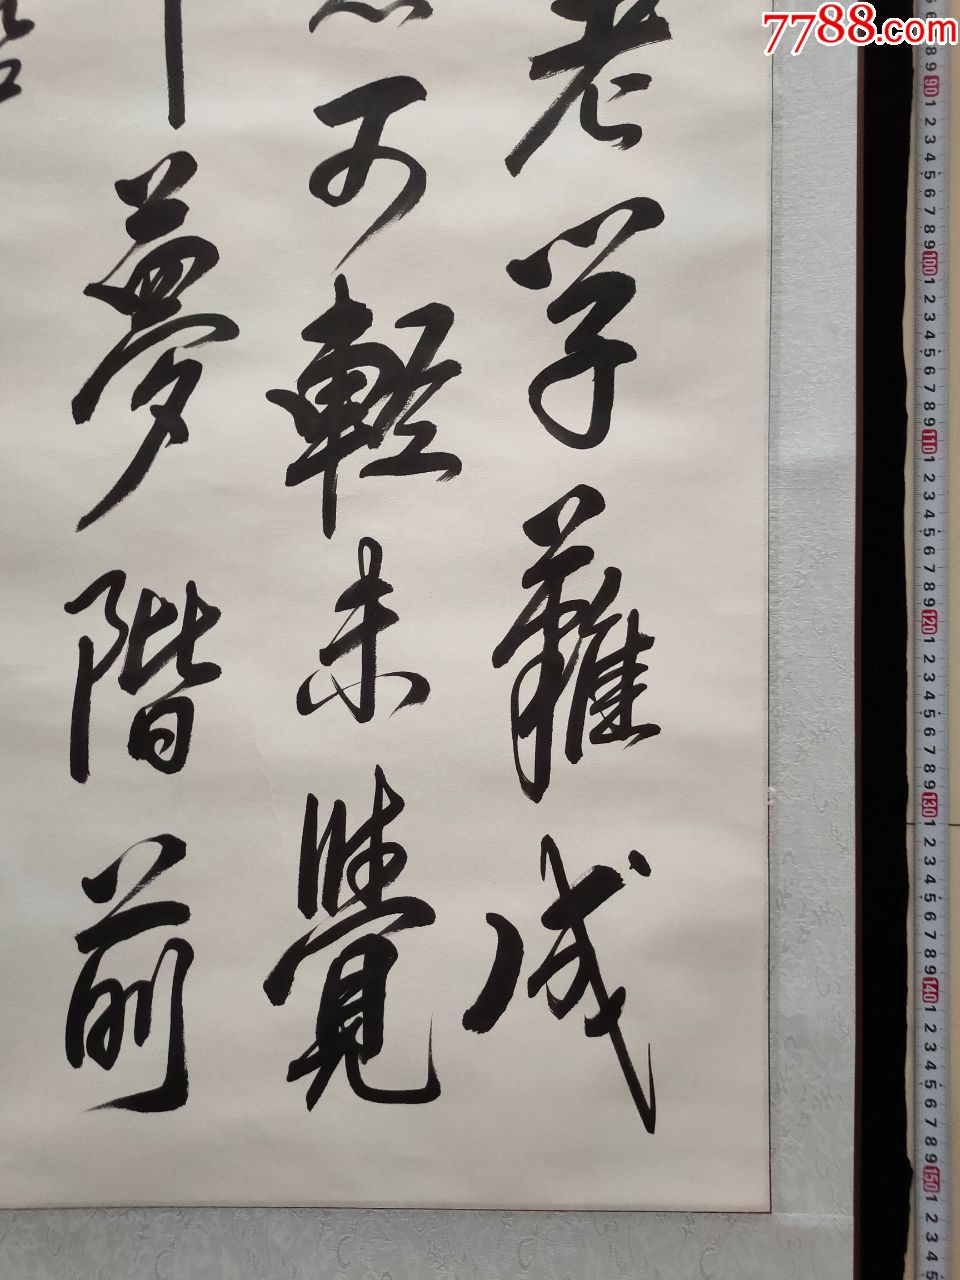 7788.com
老学難成
不可輕未覺
夢階前